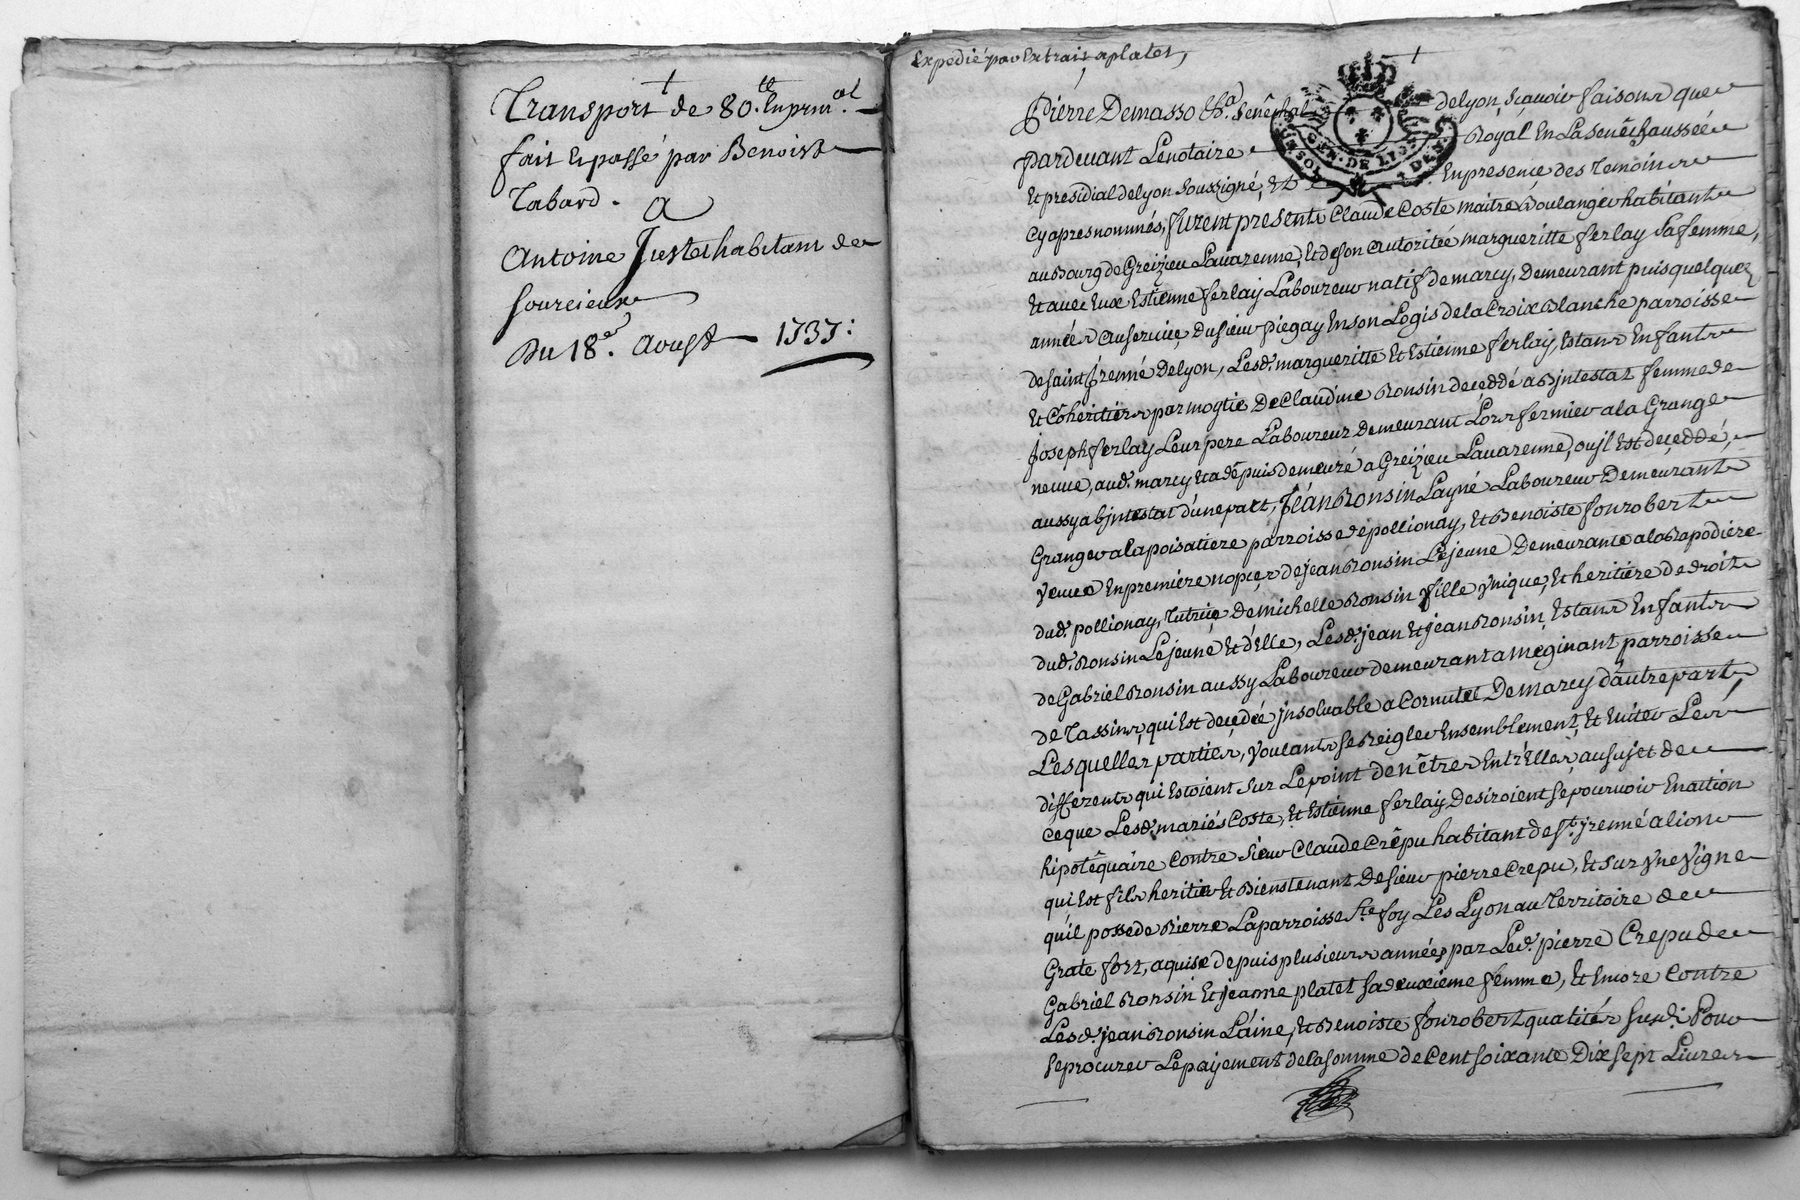 Transport de 80.tt En prin.al
fait Et passé par Benoist
Tabard. a
Antoine Juste habitant de
sourcieux
Du 18.e Aoust 1737:
Expedié par Extrait a platet,
Pierre Demasso Ch.er Senêchal delyon, sçauoir faisons que
pardeuant Le notaire Royal En La senêchaussée
Et presidial delyon soussigné, Et En presence des Temoins
cy apres nommés, furent presents Claude Coste maitre Boulanger habitant
au Bourg de Greizieu Lauarenne, Et de son autoritée margueritte ferlay Sa femme,
Et auec Eux Estienne ferlay Laboureur natif demarcy, demeurant puis quelques
années au seruice du sieur piegay En son Logis de la Croix Blanche parroisse
de saint Jrenné delyon, Lesd. margueritte Et Estienne ferlay, Estans Enfants
Et Cohéritiers par mogtié De Claudine Ronsin decéddé abjntestat femme de
Joseph ferlay Leur pere Laboureur demeurant Lors fermier a la Grange
neuue, aud. marcy Et a depuis demeuré a Greizieu Lauarenne, ou jl Est deceddé,
aussy abjntestat d'une part, Jean Ronsin Layné Laboureur Demeurant
Granger a la poisatiere parroisse de pollionay, Et Benoiste fourobert
Veuue En premiere nopces de jean Ronsin Le jeune Demeurante a la Rapodiere
dud. pollionay, Tutrice De michelle Ronsin fille ynique, Et heritiere de droit
dud. Ronsin Le jeune Et d'elle, Lesd. jean Et jean Ronsin, Estans Enfants
de Gabriel Ronsin aussy Laboureur demeurant a meginant parroisse
de Tassins, qui Est decedée jnsoluable a Cornutet De marcy d'autre part,
Lesquelles parties, voulants se Reigler Ensemblement, Et Euiter Les
differents qui Estoient sur Le point de nêtre Entr'Elles, au sujet de
ce que Lesd. mariés Coste, Et Estienne ferlay Desiroient se pouruoir En action
hipotêquaire Contre sieur Claude Crêpu habitant de st. jrenné a lion
qui Est fils heritier Et Bienstenant De sieur pierre Crepu, Et sur yne Vigne
qu'il possede Rierre La parroisse Ste foy Les Lyon au Territoire de
Grate fort, aquise depuis plusieurs années par Led. pierre Crepu de
Gabriel Ronsin Et jeanne platet sa deuxieme femme, Et Encore Contre
Lesd. jean Ronsin L'áine, Et Benoiste fourobert qualités susd. Pour
se procurer Le payement de la somme de Cent soixante Dix sept Liures